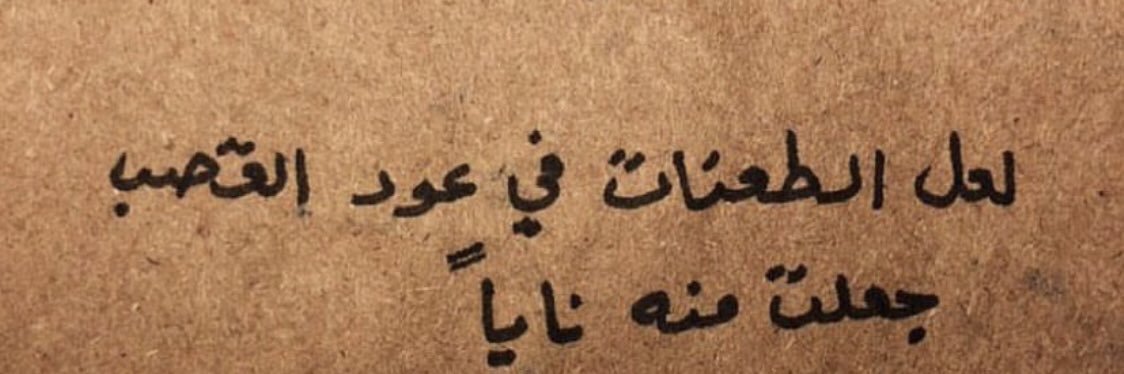 لعل الطعنات في عود القصب
جعلت منه ناياً